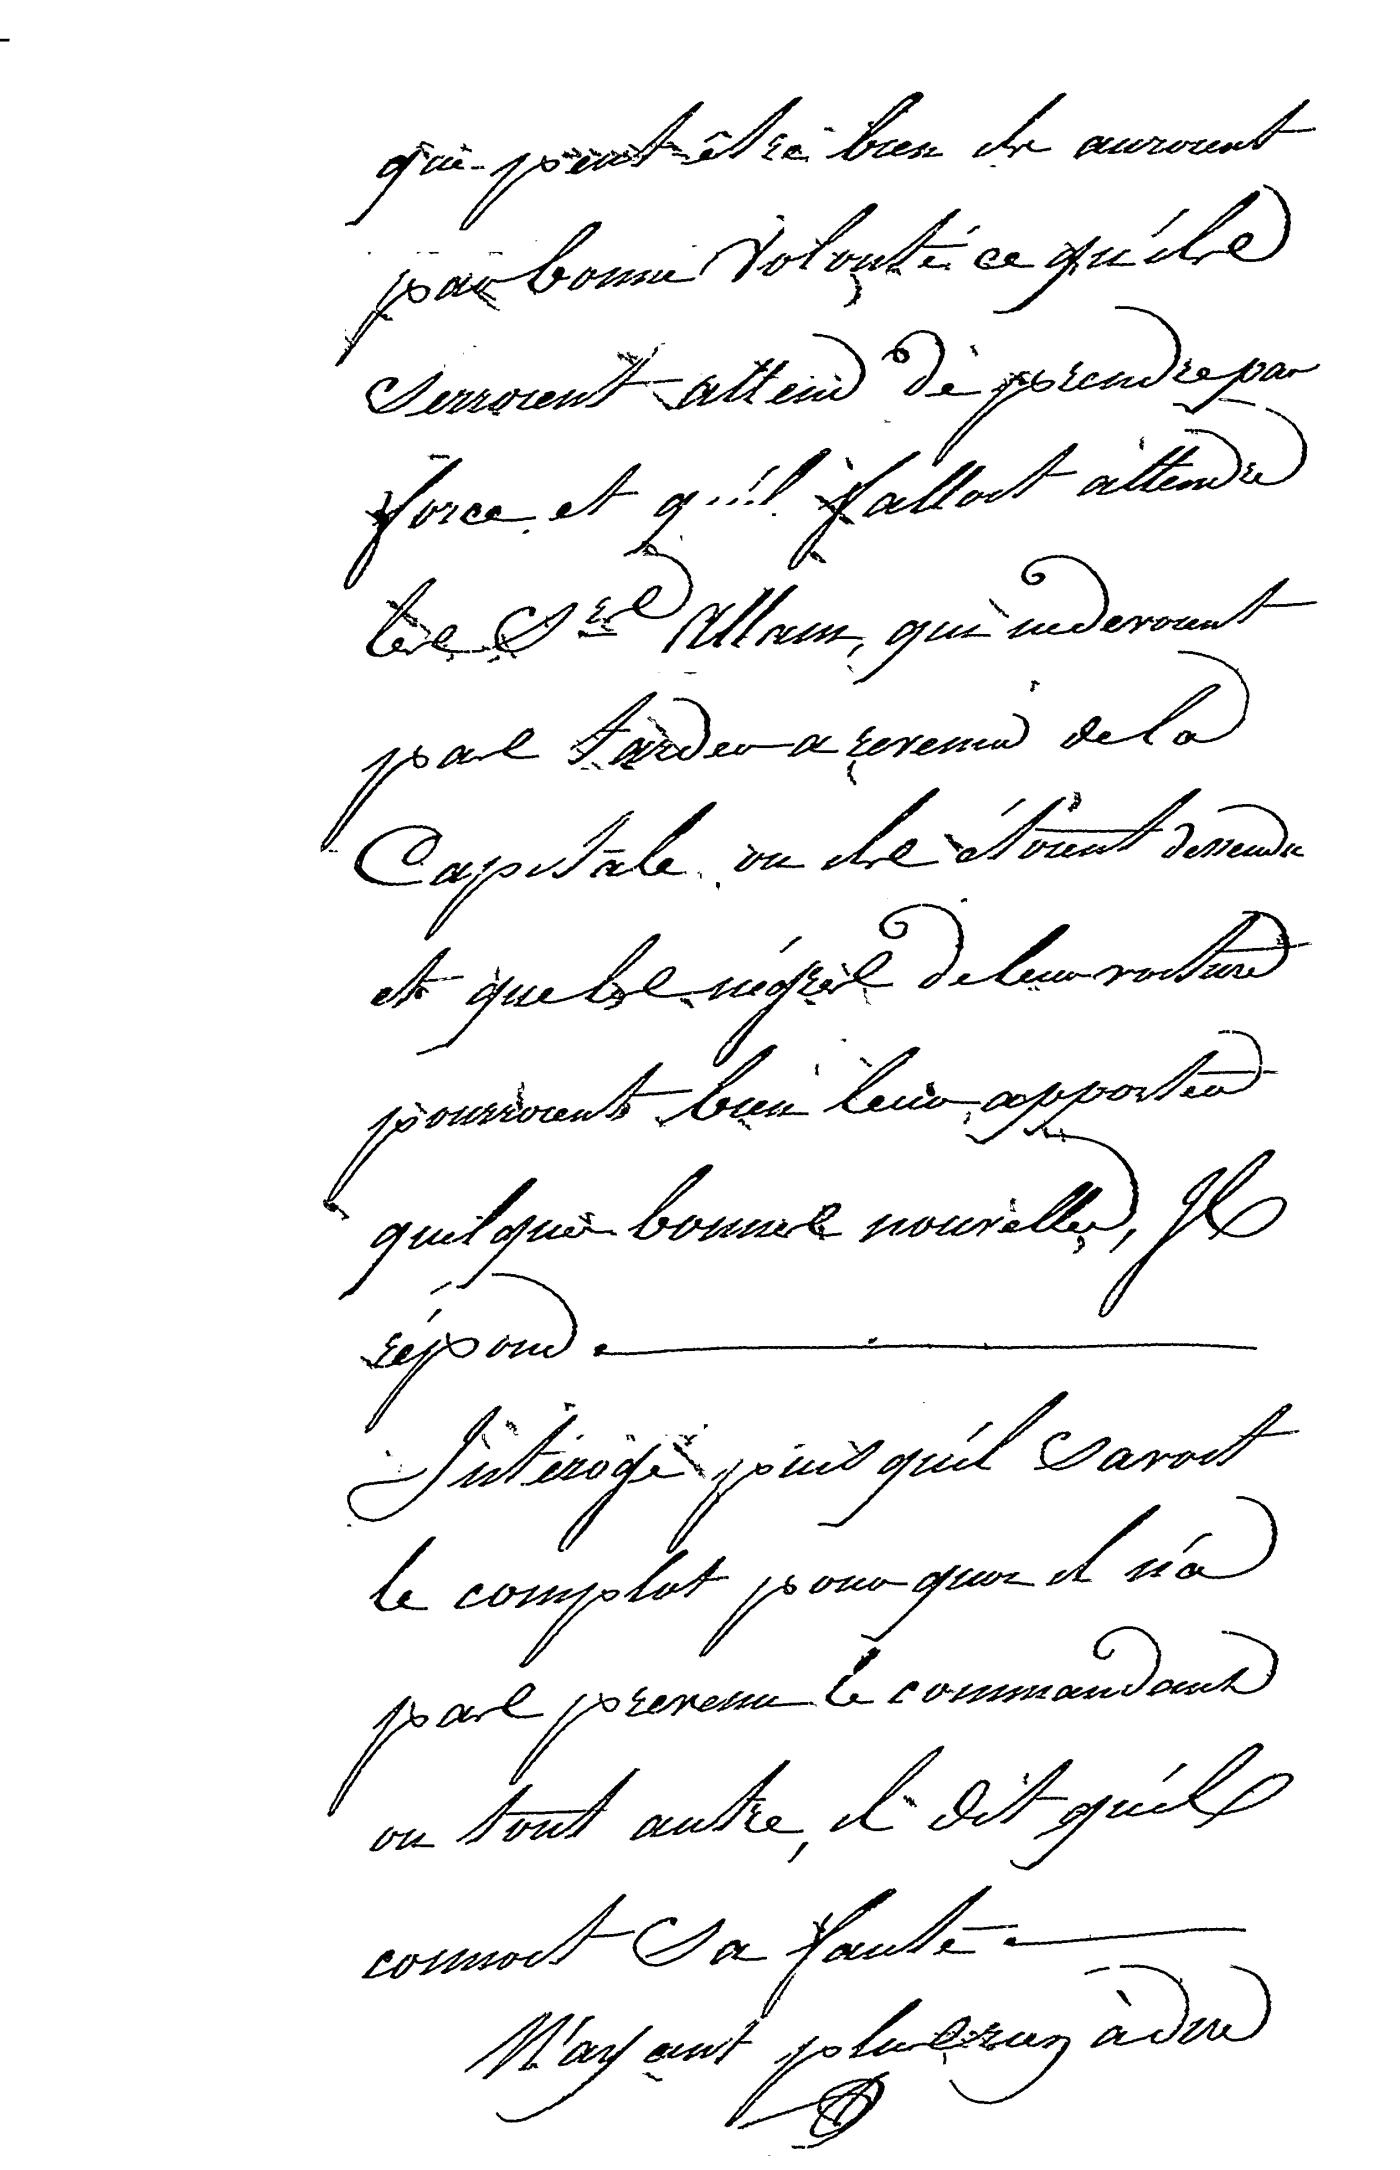 qui peut-être bien ils auroient
par bonne volonté ce qu'ils
serroient attend de prendre par
force et qu'il falloit attendre
les Srs Allain, qui ne devroient
pas tarder a revenir de la
Capitale ou ils étoient dessendu
et que les négres de leur voiture
pourroient bien leur apporter
quelques bonnes nouvelles, Il
répond.
Intérogé puis qu'il savoit
le complot pourquoi il n'a
pas prevenu le commandant
ou tout autre, il dit qu'il
connoit sa faute.
N'ayant plus rien à dire